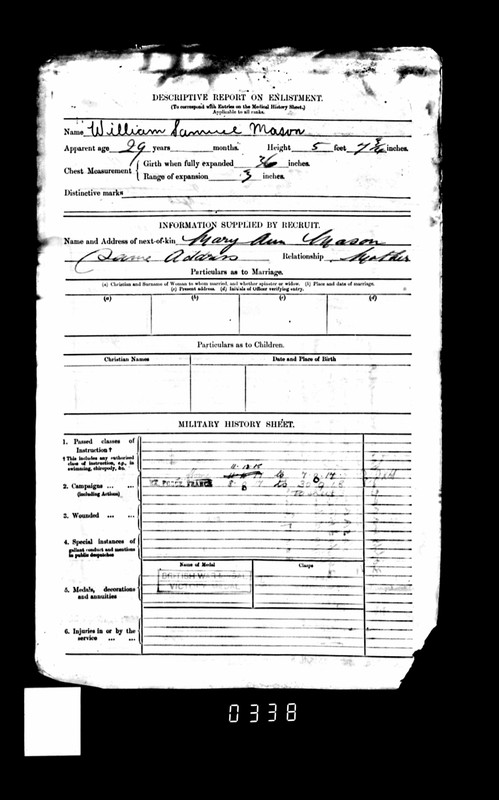 DESCRIPTIVE REPORT ON ENLISTMENT.
(To correspond with Entries on the Medical History Sheet.)
Applicable to all ranks.
Name William Samuel Mason
Apparent age 29 years months. Height 5 feet 7 inches.
Chest Measurement { Girth when fully expanded 36 inches.
Range of expansion 3 inches.
Distinctive marks
INFORMATION SUPPLIED BY RECRUIT.
Name and Address of next-of-kin Mary Ann Mason
(Same Address Relationship Mother
Particulars as to Marriage.
(a) Christian and Surname of Woman to whom married, and whether spinster or widow. (b) Place and date of marriage.
(c) Present address. (d) Initials of Officer verifying entry.
(a) (b) (c) (d)
Particulars as to Children.
Christian Names Date and Place of Birth
MILITARY HISTORY SHEET.
1. Passed classes of
Instruction †
† This includes any authorized
class of instruction, e.g., in
swimming, chiropody, &c.
11.12.15
to 7.6.17
2. Campaigns ... ...
(including Actions)
FRANCE 8.6.17 to
3. Wounded ... ...
4. Special instances of
gallant conduct and mentions
in public despatches
Name of Medal Clasps
BRITISH WAR
VICTORY
5. Medals, decorations
and annuities
6. Injuries in or by the
service ... ...
0338